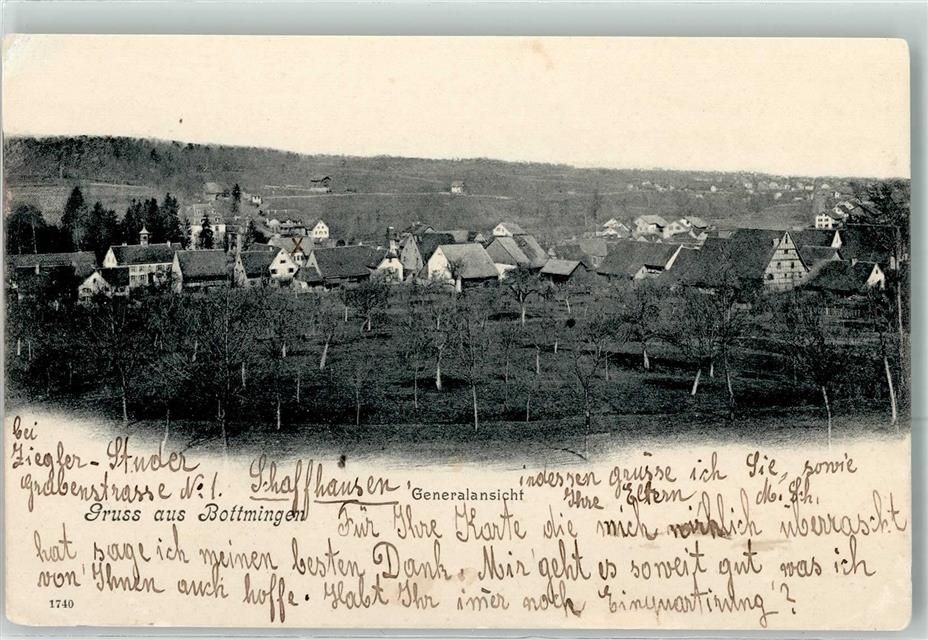 bei
Ziegler-Studer
Grabenstrasse No 1. Schaffhausen.
Generalansicht
Gruss aus Bottmingen
Für Ihre Karte die mich wirklich überrascht
hat sage ich meinen besten Dank. Mir geht es soweit gut was ich
von Ihnen auch hoffe. Habt Ihr imer noch Einquartirung?
indessen grüsse ich Sie, sowie
Ihre Eltern M. Sch.
1740